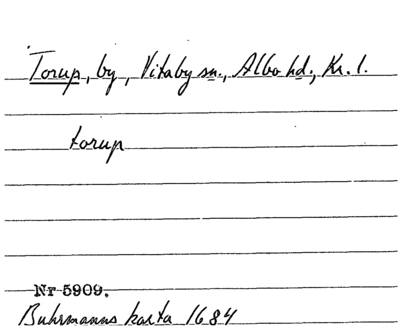 Torup, by, Vitaby sn., Albo hd., Kr. l.
torup
Nr 5909.
Buhrmanns karta 1684